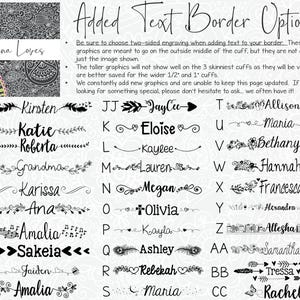 Added Text Border Optio
na Loves
Be sure to choose two-sided engraving when adding text to your border. The
graphics are meant to go on the outside middle of the cuff, but they are not
just the image shown.
The taller graphics will not show well on the 3 skinniest cuffs as they will be
are better saved for the wider 1/2" and 1" cuffs.
We constantly add new graphics and are unable to keep this page updated. If
looking for something special, please don't hesitate to ask... we often have it!
Kirsten JJ JayCee T Allison
Katie K Eloise U Maria
Roberta L Kaylee V Bethany
Grandma M Lauren W Hannah
Karissa N Megan X Francess
Ana O Olivia Y Alexandra
Amalia P Kayla Z Allesha
Sakeia Q Ashley AA Samantha
Jaiden R Rebekah BB Tressa
Amalia S Maria CC Rachel